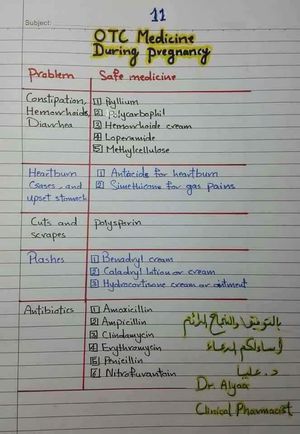 Subject:
11
OTC Medicine
During pregnancy
Problem
Safe medicine
Constipation,
Hemorrhoids,
Diarrhea
1 Psyllium
2 Polycarbophil
3 Hemorrhoide cream
4 Loperamide
5 Methylcellulose
Heartburn
Gases, and
upset stomach
1 Antacids for heartburn
2 Simethicone for gas pains
Cuts and
scrapes
polysporin
Rashes
1 Benadryl cream
2 Caladryl lotion or cream
3 Hydrocortisone cream or ointment
Antibiotics
1 Amoxicillin
2 Ampicillin
3 Clindamycin
4 Erythromycin
5 Penicillin
6 Nitrofurantoin
بالتوفيق والنجاح الدائم
أسألكم الدعاء
د. علياء
Dr. Alyaa
Clinical Pharmacist